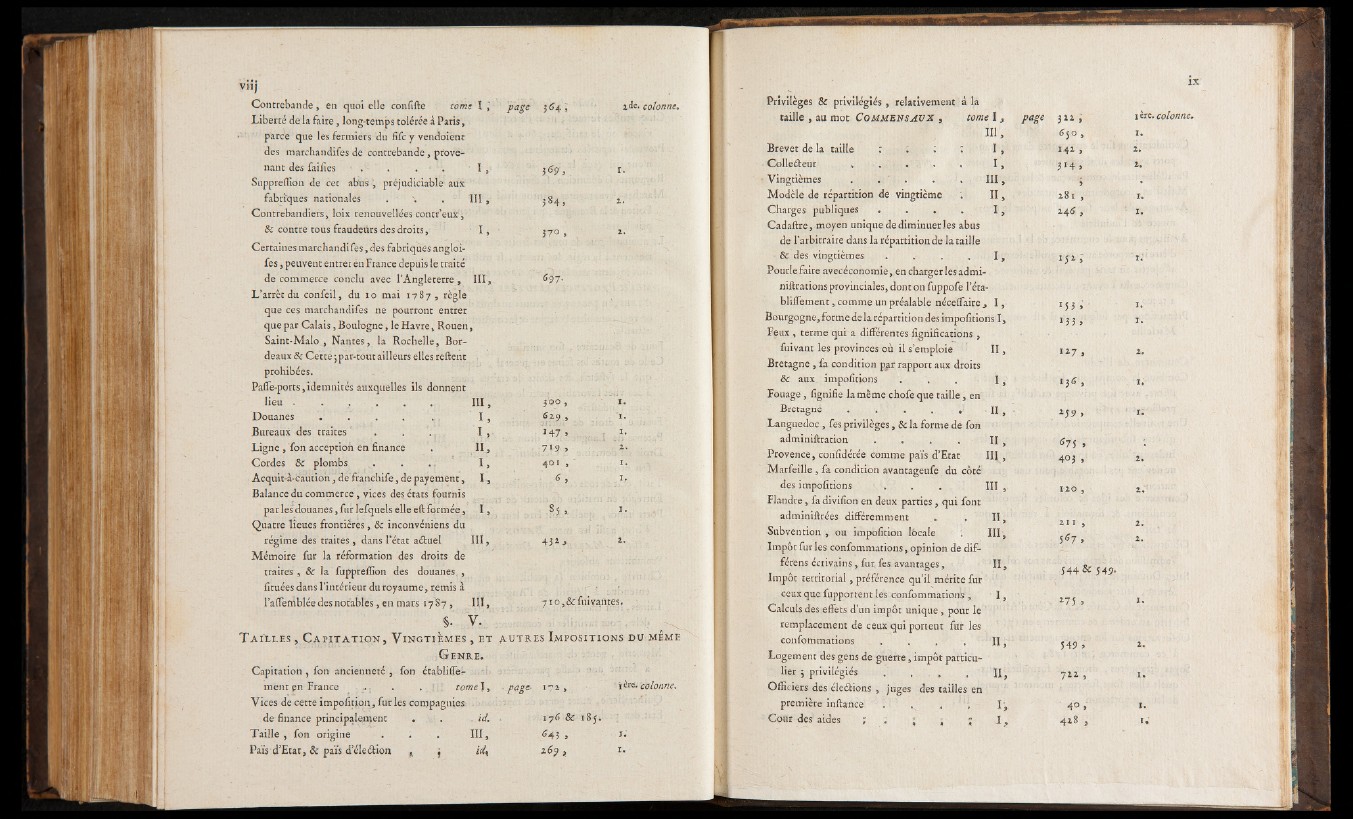 viij
Contrebande, en quoi elle consiste tome I, page 364, 2de. colonne.
Liberté de la faire, long-temps tolérée à Paris,
parce que les fermiers du fisc y vendoient
des marchandises de contrebande, prove-
nant des saisies . . . . I, 369, 1.
Suppression de cet abus, préjudiciable aux
fabriques nationales . . . III, 384, 2.
Contrebandiers, loix renouvellées contr'eux,
& contre tous fraudeurs des droits, I, 370, 2.
Certaines marchandises, des fabriques angloi-
ses, peuvent entrer en France depuis le traité
de commerce conclu avec l'Angleterre, III, 697.
L'arrêt du conseil, du 10 mai 1787, règle
que ces marchandises ne pourront entrer
que par Calais, Boulogne, le Havre, Rouen,
Saint-Malo, Nantes, la Rochelle, Bor-
deaux & Cette; par-tout ailleurs elles restent
prohibées.
Passe-ports, idemnités auxquelles ils donnent
lieu . . . . . . III, 300, 1.
Douanes . . . . . I, 629, 1.
Bureaux des traites . . . I, 147, 1.
Ligne, son acception en finance . II, 719, 2.
Cordes & plombs . . . I, 401, 1.
Acquit-à-caution, de franchise, de payement, I, 6, 1.
Balance du commerce, vices des états fournis
par les douanes, sur lesquels elle est formée, I, 85, 1.
Quatre lieues frontières, & inconvéniens du
régime des traites, dans l'état actuel III, 432, 2.
Mémoire sur la réformation des droits de
traites, & la suppression des douanes,
situées dans l'intérieur du royaume, remis à
l'assemblée des notables, en mars 1787, III, 710, & suivantes.
§. V.
TAILLES, CAPITATION, VINGTIÈMES, ET AUTRES IMPOSITIONS DU MÊME
GENRE.
Capitation, son ancienneté, son établisse-
ment en France . . . tome I, page 172, 1ère. colonne.
Vices de cette imposition, sur les compagnies
de finance principalement . . id. 176 & 185.
Taille, son origine . . . III, 643, 1.
Païs d'Etat, & païs d'élection . . id, 269, 1.
ix
Privilèges & privilégiés, relativement à la
taille, au mot COMMENSAUX, tome I, page 322, 1ère. colonne.
III, 650, 1.
Brevet de la taille . . . . I, 142, 2.
Collecteur . . . . . I, 314, 2.
Vingtièmes . . . . . III, , .
Modèle de répartition de vingtième . II, 281, 1.
Charges publiques . . . . I, 246, 1.
Cadastre, moyen unique de diminuer les abus
de l'arbitraire dans la répartition de la taille
& des vingtièmes . . . . I, 152, 1.
Pour le faire avec économie, en charger les admi-
nistrations provinciales, dont on suppose l'éta-
blissement, comme un préalable nécessaire, I, 153, 1.
Bourgogne, forme de la répartition des impositions I, 133, 1.
Feux, terme qui a différentes significations,
suivant les provinces où il s'emploie II, 127, 2.
Bretagne, sa condition par rapport aux droits
& aux impositions . . . I, 136, 1.
Fouage, signifie la même chose que taille, en
Bretagne . . . . . II, 259, 1.
Languedoc, ses privilèges, & la forme de son
administration . . . . II, 675, .
Provence, considérée comme païs d'Etat III, 403, 2.
Marseille, sa condition avantageuse du côté
des impositions . . . III, 120, 2.
Flandre, sa division en deux parties, qui sont
administrées différemment . . II, 211, 2.
Subvention, ou imposition locale . III, 567, 2.
Impôt sur les consommations, opinion de dif-
férens écrivains, sur ses avantages, II, 544 & 549.
Impôt territorial, préférence qu'il mérite sur
ceux que supportent les consommations, I, 275, 1.
Calculs des effets d'un impôt unique, pour le
remplacement de ceux qui portent sur les
consommations . . . . II, 549, 2.
Logement des gens de guerre, impôt particu-
lier; privilégiés . . . . II, 722, 1.
Officiers des élections, juges des tailles en
première instance . . . . I, 40, 1.
Cour des aides . . . . . I, 428, 1.